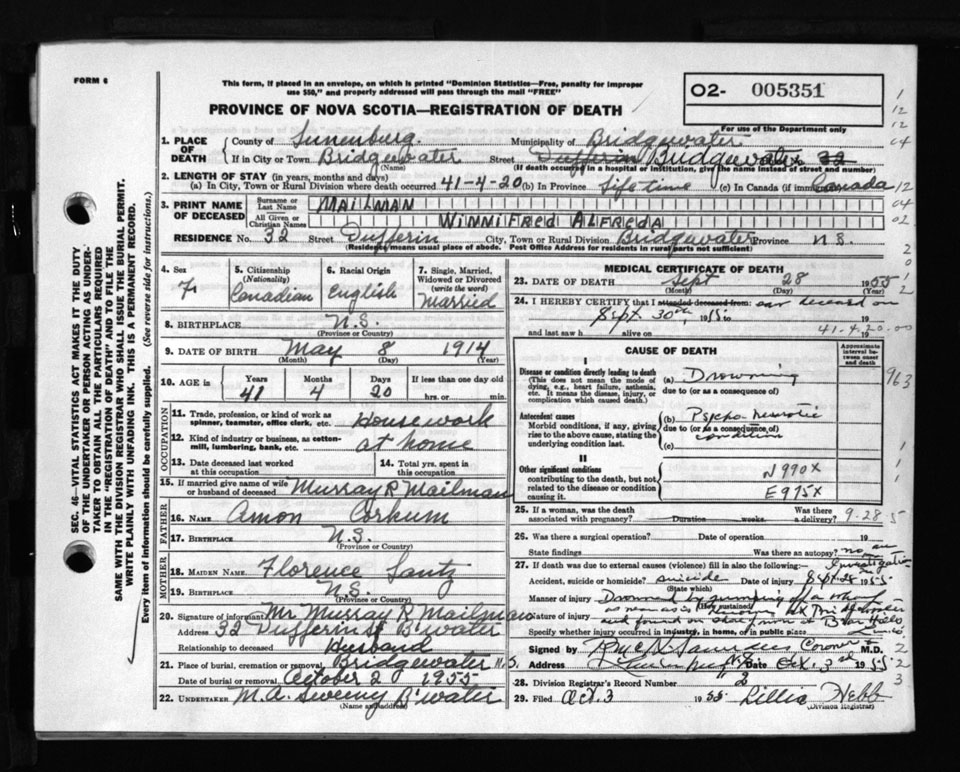 FORM 6
This form, if placed in an envelope, on which is printed "Dominion Statistics—Free, penalty for improper
use $50," and properly addressed will pass through the mail "FREE"
O2- 005351
PROVINCE OF NOVA SCOTIA—REGISTRATION OF DEATH
For use of the Department only
1. PLACE OF DEATH
County of Lunenburg. Municipality of Bridgewater
If in City or Town Bridgewater Street Dufferin Bridgewater 32
(Name) (If death occurred in a hospital or institution, give the name instead of street and number)
2. LENGTH OF STAY (in years, months and days)
(a) In City, Town or Rural Division where death occurred 41-4-20 (b) In Province life time (c) In Canada (if immigrant) Canada
3. PRINT NAME OF DECEASED
Surname or Last Name MAILMAN
All Given or Christian Names WINNIFRED ALFREDA
RESIDENCE No. 32 Street Dufferin City, Town or Rural Division Bridgewater Province N.S.
(Residence means usual place of abode. Post Office addresses for residents in rural parts not sufficient)
4. Sex F
5. Citizenship (Nationality) Canadian
6. Racial Origin English
7. Single, Married, Widowed or Divorced (write the word) Married
8. BIRTHPLACE N.S.
(Province or Country)
9. DATE OF BIRTH May 8 1914
(Month) (Day) (Year)
10. AGE IS Years 41 Months 4 Days 20 If less than one day old hrs. or min.
OCCUPATION
11. Trade, profession or kind of work as spinner, teamster, office clerk, etc. House work
12. Kind of industry or business, as cotton-mill, lumbering, bank, etc. at home
13. Date deceased last worked at this occupation
14. Total yrs. spent in this occupation
15. If married give name of wife or husband of deceased Murray R Mailman
FATHER
16. NAME Amon Corkum
17. BIRTHPLACE N.S.
(Province or Country)
MOTHER
18. MAIDEN NAME Florence Lantz
19. BIRTHPLACE N.S.
(Province or Country)
20. Signature of informant Mr Murray R Mailman
Address 32 Dufferin St B'water
Relationship to deceased Husband
21. Place of burial, cremation or removal Bridgewater N.S.
Date of burial or removal October 2 1955
22. UNDERTAKER M.A. Sweeny B'water
(Name and Address)
MEDICAL CERTIFICATE OF DEATH
23. DATE OF DEATH Sept 28 1955
(Month) (Day) (Year)
24. I HEREBY CERTIFY that I attended deceased from: saw deceased on
Sept 30th, 1955
and last saw h alive on 19
41-4-20-00
CAUSE OF DEATH
Approximate interval between onset and death
I
Disease or condition directly leading to death (a) Drowning
(This does not mean the mode of dying, e.g., heart failure, asthenia, etc. It means the disease, injury, or complication which caused death.)
due to (or as a consequence of)
963
Antecedent causes (b) Psycho-neurotic condition
Morbid conditions, if any, giving rise to the above cause, stating the underlying condition last.
due to (or as a consequence of)
(c)
II
Other significant conditions
contributing to the death, but not related to the disease or condition causing it.
N990X
E975X
25. If a woman, was the death associated with pregnancy? Duration weeks. Was there a delivery?
9-28-5
26. Was there a surgical operation? Date of operation 19
State findings Was there an autopsy? no, an Investigation
27. If death was due to external causes (violence) fill in also the following:—
Accident, suicide or homicide? suicide Date of injury Sept 28 1955
(State which)
Manner of injury Drowned by jumping of a wharf
(How sustained)
Nature of injury
and found on shore
Specify whether injury occurred in industry, in home, or in public place
Signed by Coroner M.D.
Address Date Oct. 3rd 1955
28. Division Registrar's Record Number
29. Filed Oct. 3 1955 Lillie Webb
(Division Registrar)
SEC. 46—VITAL STATISTICS ACT MAKES IT THE DUTY
OF THE UNDERTAKER OR PERSON ACTING AS UNDER-
TAKER TO OBTAIN ALL THE PARTICULARS REQUIRED
IN THE "REGISTRATION OF DEATH" AND TO FILE THE
SAME WITH THE DIVISION REGISTRAR WHO SHALL ISSUE THE BURIAL PERMIT.
WRITE PLAINLY WITH UNFADING INK. THIS IS A PERMANENT RECORD.
Every item of information should be carefully supplied. (See reverse side for instructions.)